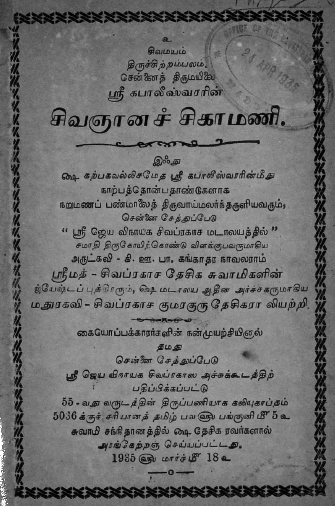 உ
சிவமயம்
திருச்சிற்றம்பலம்.
சென்னைத் திருமயிலை
ஸ்ரீ கபாலீஸ்வரரின்
சிவஞானச் சிகாமணி.
இஃது
௸ கற்பகவல்லிசமேத ஸ்ரீ கபாலீஸ்வரரின்மீது
காற்பத்தொன்பதாண்டுகளாக
நறுமணப் பண்மாலைத் திருவாய்மலர்ந்தருளியவரும்,
சென்னை சேத்துப்பேடு
“ ஸ்ரீ ஜெய விநாயக சிவப்ரகாச மடாலயத்தில் ”
சமாதி திருகோயிற்கொண்டு விளங்குபவருமாகிய
அருட்கவி - கி. ஊ. பா. கங்காதர நாவலராம்
ஸ்ரீமத் - சிவப்ரகாச தேசிக சுவாமிகளின்
ஜ்யேஷ்டப் புத்திரரும், ௸ மடாலய ஆதின அர்ச்சகருமாகிய
மதுரகவி - சிவப்ரகாச குமரகுரு தேசிகரா லியற்றி
கையொப்பக்காரர்களின் நன்முயற்சியினால்
தமது
சென்னை சேத்துப்பேடு
ஸ்ரீ ஜெய விநாயக சிவப்ரகாஸ அச்சுக்கூடத்திற்
பதிப்பிக்கப்பட்டு
55 - வது வருடத்தின் திருப்பணியாக கலியுகாப்தம்
5036 க்குச் சரியானத் தமிழ் பவ௵ பங்குனி ௴ 5 உ
சுவாமி சந்நிதானத்தில் ௸ தேசிக ரவர்களால்
அரங்கேற்றஞ் செய்யப்பட்டது.
1935 ௵ மார்ச் ௴ 18 உ
21 APR 1935